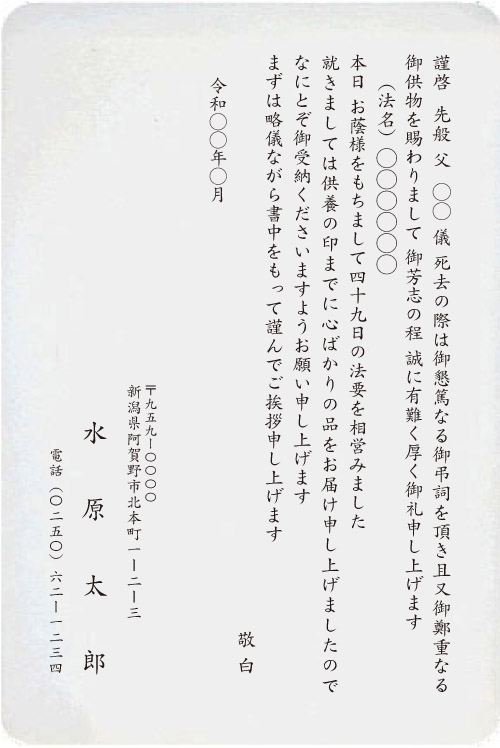 謹啓 先般 父 〇〇 儀 死去の際は御懇篤なる御弔詞を頂き且又御鄭重なる
御供物を賜わりまして 御芳志の程 誠に有難く厚く御礼申し上げます
（法名）〇〇〇〇〇〇
本日 お蔭様をもちまして四十九日の法要を相営みました
就きましては供養の印までに心ばかりの品をお届け申し上げましたので
なにとぞ御受納くださいますようお願い申し上げます
まずは略儀ながら書中をもって謹んでご挨拶申し上げます
敬白
令和〇〇年〇月
〒九五九ー〇〇〇〇
新潟県阿賀野市北本町一ー二ー三
水原太郎
電話（〇二五〇）六二ー一二三四